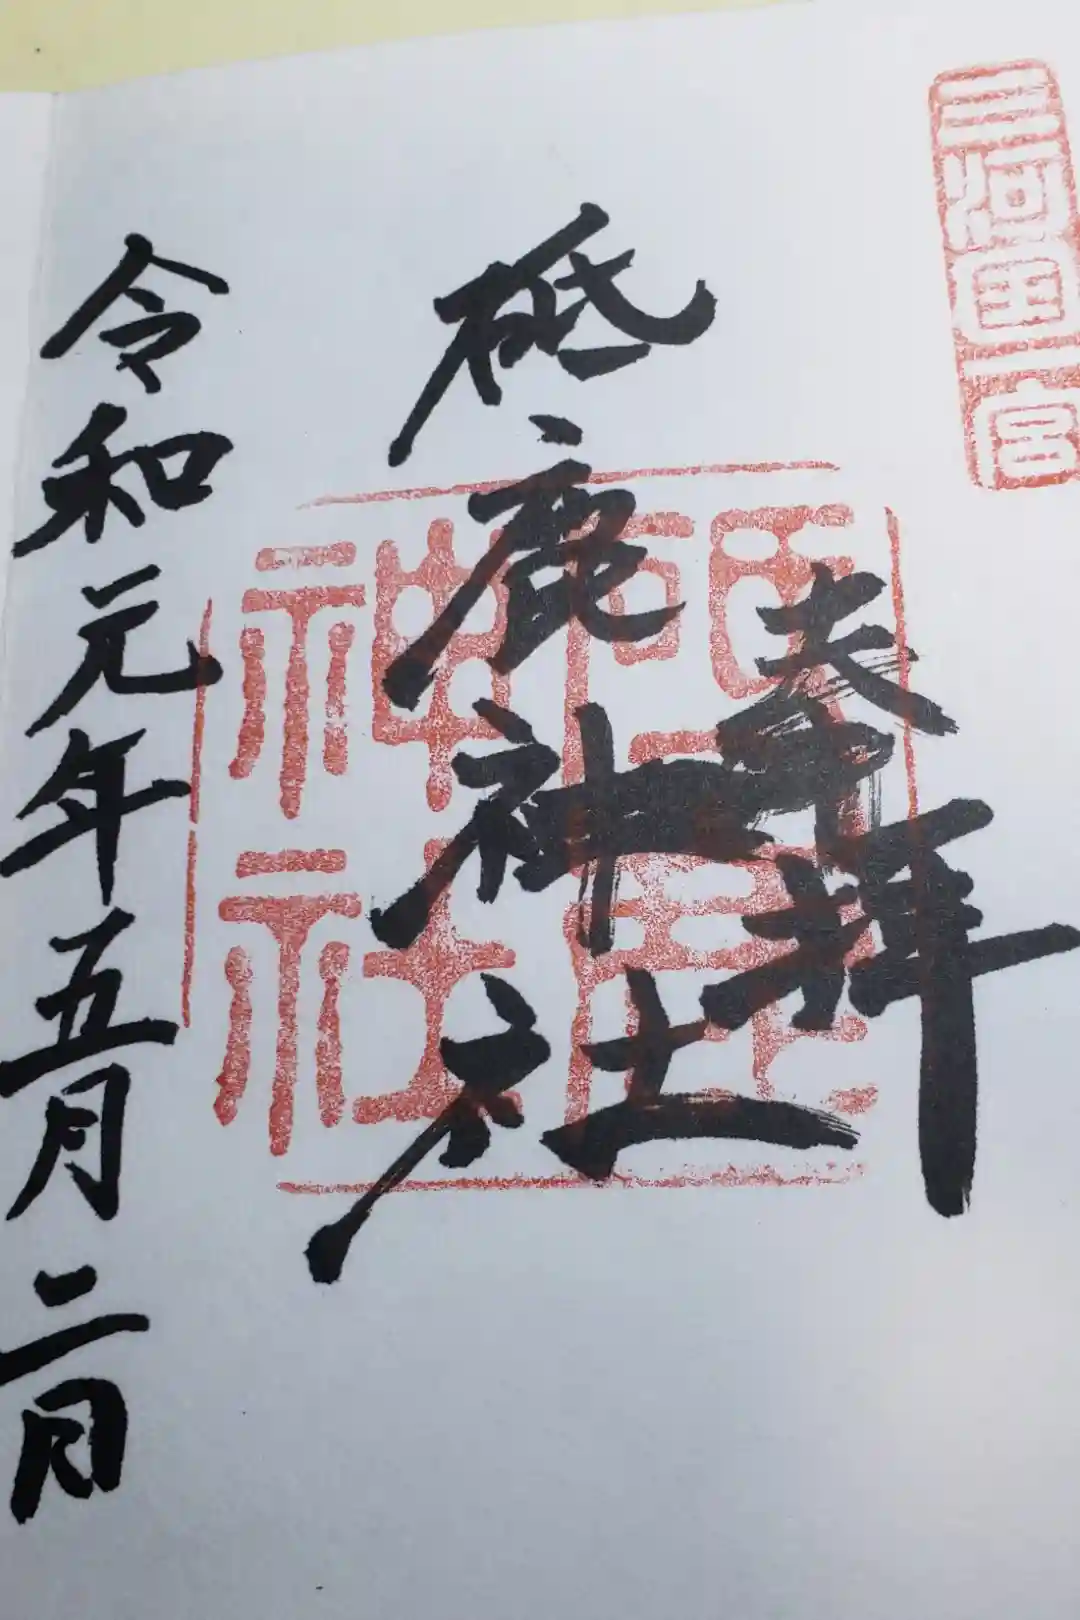 三河國一宮
奉拝
砥鹿神社
砥鹿神社
令和元年五月二日